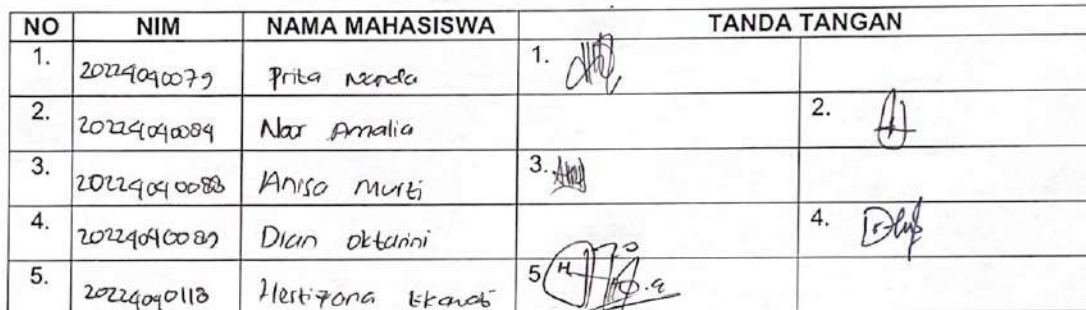 NO NIM NAMA MAHASISWA TANDA TANGAN
1. 20224040079 Prita Nanda 1.
2. 20224040084 Noor Amalia 2.
3. 20224040088 Anisa Murti 3.
4. 20224040089 Dian Oktarini 4.
5. 20224040118 5